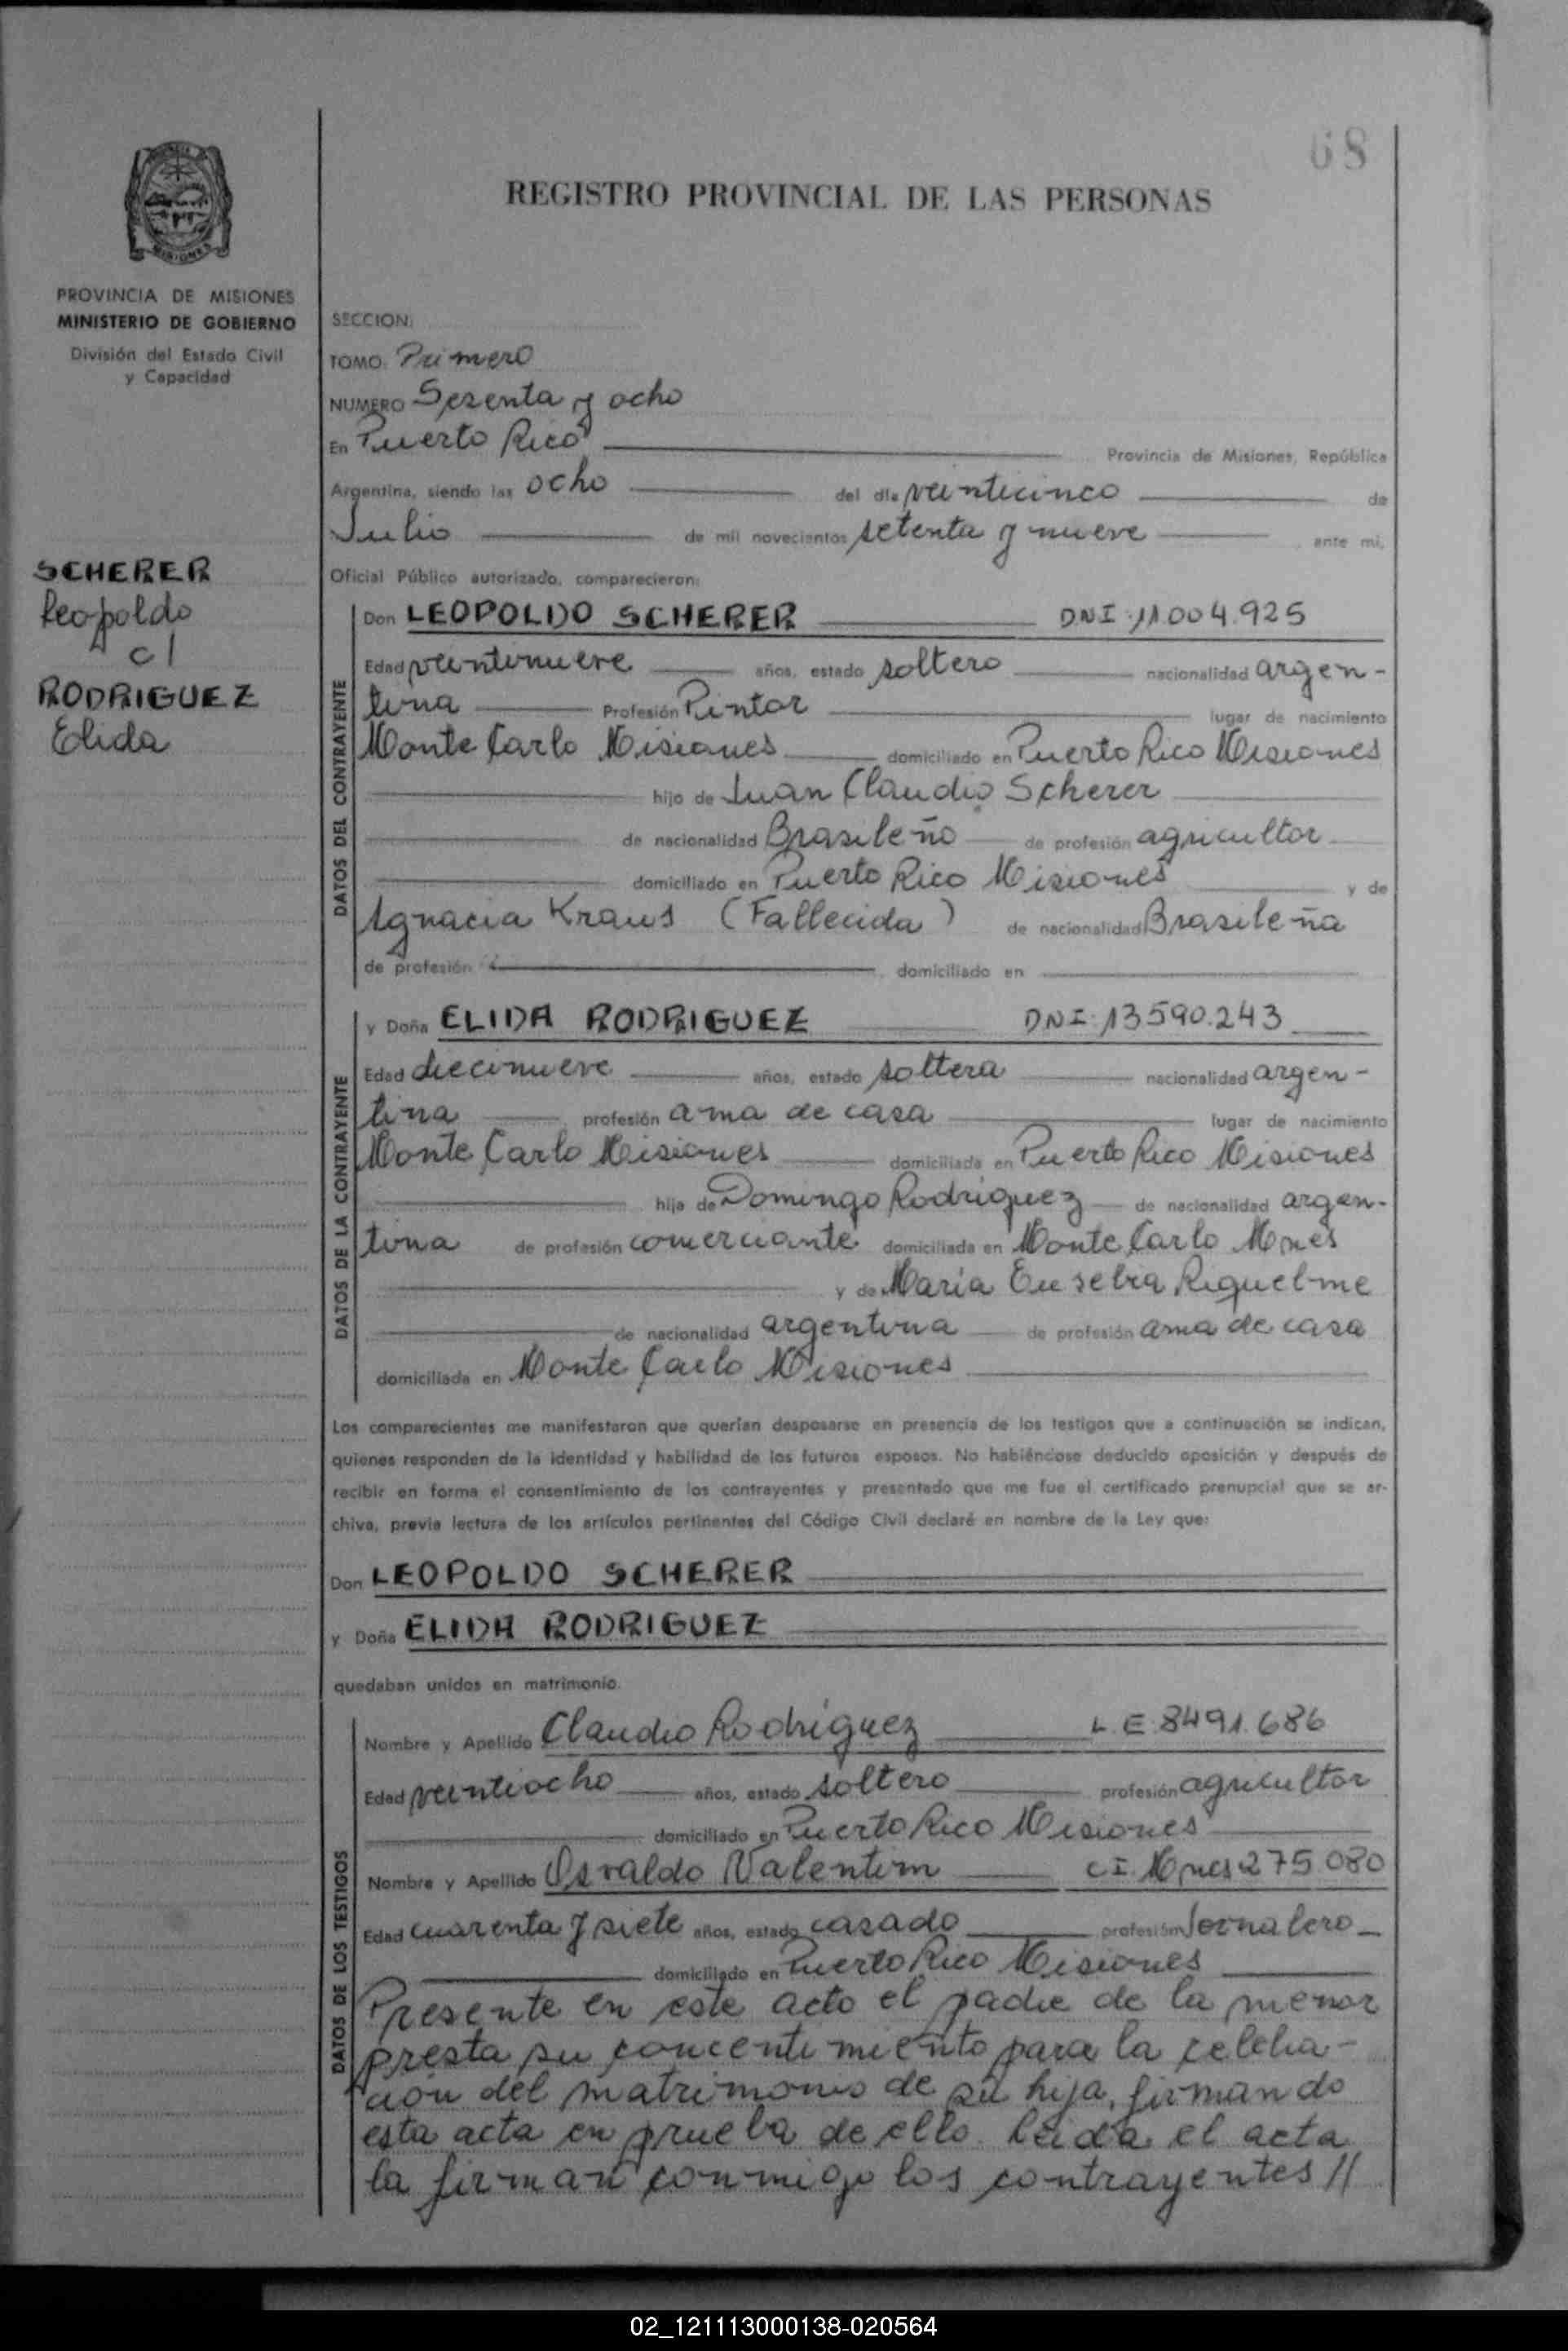 68
REGISTRO PROVINCIAL DE LAS PERSONAS
PROVINCIA DE MISIONES
MINISTERIO DE GOBIERNO
División del Estado Civil
y Capacidad
SCHERER
Leopoldo
c/
RODRIGUEZ
Elida
SECCION:
TOMO: Primero
NUMERO Sesenta y ocho
En Puerto Rico Provincia de Misiones, República
Argentina, siendo las ocho del día veinticinco de
Julio de mil novecientos setenta y nueve ante mi,
Oficial Público autorizado, comparecieron:
DATOS DEL CONTRAYENTE
Don LEOPOLDO SCHERER DNI 11.004.925
Edad veintinueve años, estado soltero nacionalidad argen-
tina Profesión Pintor lugar de nacimiento
Monte Carlo Misiones domiciliado en Puerto Rico Misiones
hijo de Juan Claudio Scherer
de nacionalidad Brasileño de profesión agricultor
domiciliado en Puerto Rico Misiones y de
Ignacia Kraus (Fallecida) de nacionalidad Brasileña
de profesión domiciliado en
DATOS DE LA CONTRAYENTE
y Doña ELIDA RODRIGUEZ DNI: 13590.243
Edad diecinueve años, estado soltera nacionalidad argen-
tina profesión ama de casa lugar de nacimiento
Monte Carlo Misiones domiciliada en Puerto Rico Misiones
hija de Domingo Rodriguez de nacionalidad argen-
tina de profesión comerciante domiciliada en Monte Carlo Mnes
y de Maria Eusebia Riquelme
de nacionalidad argentina de profesión ama de casa
domiciliada en Monte Carlo Misiones
Los comparecientes me manifestaron que querían desposarse en presencia de los testigos que a continuación se indican,
quienes responden de la identidad y habilidad de los futuros esposos. No habiéndose deducido oposición y después de
recibir en forma el consentimiento de los contrayentes y presentado que me fue el certificado prenupcial que se ar-
chiva, previa lectura de los artículos pertinentes del Código Civil declaré en nombre de la Ley que:
Don LEOPOLDO SCHERER
y Doña ELIDA RODRIGUEZ
quedaban unidos en matrimonio.
DATOS DE LOS TESTIGOS
Nombre y Apellido Claudio Rodriguez L.E. 8491.686
Edad veintiocho años, estado soltero profesión agricultor
domiciliado en Puerto Rico Misiones
Nombre y Apellido Osvaldo Valentim C.I. Mnes 275.080
Edad cuarenta y siete años, estado casado profesión Jornalero
domiciliado en Puerto Rico Misiones
Presente en este acto el padre de la menor
presta su concentimiento para la celebra-
ción del matrimonio de su hija, firmando
esta acta en prueba de ello. Leida el acta
la firman conmigo los contrayentes //
02_121113000138-020564